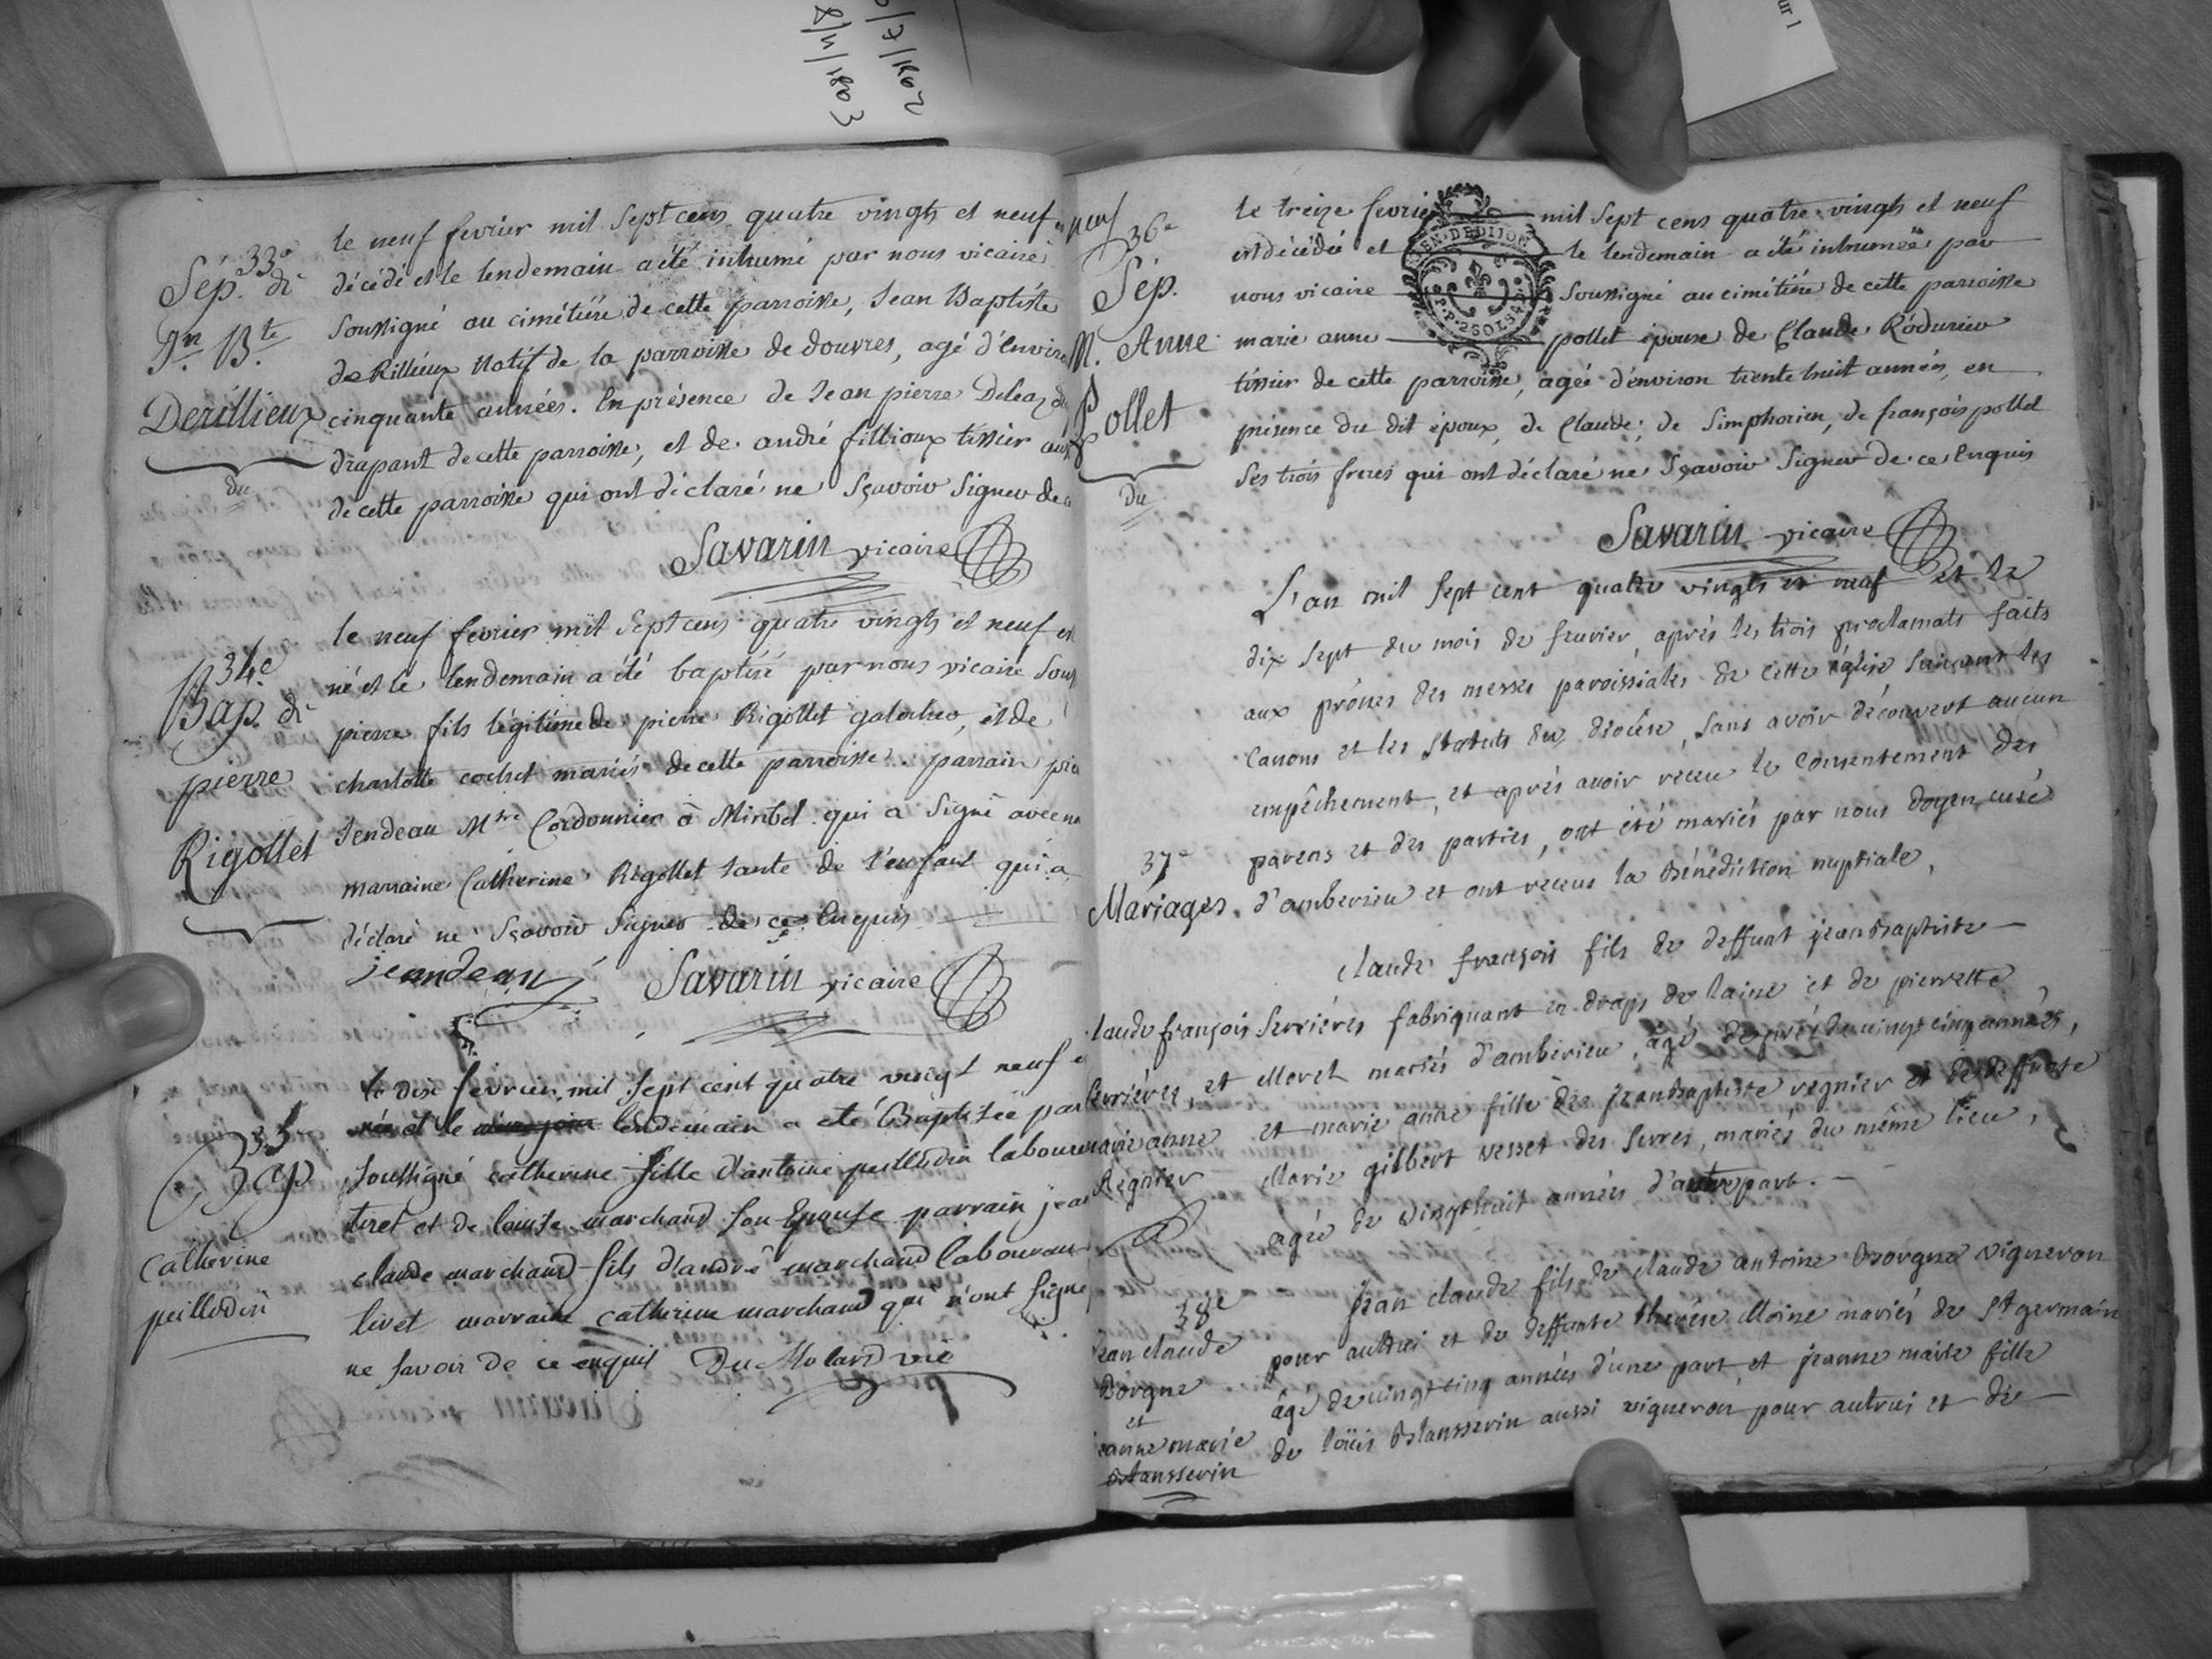 8/11/1803
/7/1802
ur 1
33e
Sép. de
Jn. Bte.
Derillieux
du
le neuf fevrier mil Sept cens quatre vingts et neuf est
décédé et le lendemain a été inhumé par nous vicaire
Soussigné au cimétière de cette parroisse, Jean Baptiste
de Rillieux Natif de la parroisse de douvres, agé d'environ
cinquante années. En présence de Jean pierre
drapant de cette parroisse, et de andré fillioux tissier
de cette parroisse qui ont déclaré ne Sçavoir Signer de
Savarin vicaire
34e
Bap. de
pierre
Rigollet
le neuf fevrier mil Sept cens quatre vingts et neuf est
né et le lendemain a été baptisé par nous vicaire Sous
pierre fils légitime de pierre Rigollet galocher, et de
charlotte cochet mariés de cette parroisse. parrain
Jendeau Mtre Cordonnier à Miribel qui a Signé avec
marraine Catherine Rigollet tante de l'enfant qui a
déclaré ne Sçavoir Signer de ce Enquis
jeandeau Savarin vicaire
35
Bap
Catherine
peillodin
le dix fevrier mil sept cent quatre vingt neuf
née et le lendemain a eté Baptisée par
soussigné catherine fille d'antoine peillodin laboureur
tiret et de louise marchand son Epouse parrain jean
claude marchand fils d'andré marchand laboureur
tiret marraine catherine marchand qui n'ont signé
ne savoir de ce enquis DuMolard vic
neuf
36e
Sép.
M. Anne
Pollet
du
le treize fevrier mil Sept cens quatre vingts et neuf
est décédée et le lendemain a été inhumée par
nous vicaire Soussigné au cimétière de cette parroisse
marie anne pollet épouse de Claude
tissier de cette parroisse, agée d'environ trente huit années, en
présence du dit époux, de Claude, de Simphorien, de françois pollet
Ses trois freres qui ont déclaré ne Sçavoir Signer de ce Enquis
EN. DE DIJON
P. 2 SOLS
Savarin vicaire
L'an mil sept cent quatre vingts et neuf et le
dix sept du mois de fevrier, aprés les trois proclamats faits
aux prônes des messes paroissiales de cette église suivant les
Canons et les Statuts du diocése, sans avoir découvert aucun
empêchement, et aprés avoir receu le consentement des
parens et des parties, ont été mariés par nous doyen curé
d'amberieu et ont receus la Bénédiction nuptiale,
37e
Mariages.
Claude françois fils de deffunt jean Baptiste
Serrières fabriquant en draps de laine et de pierrette
Morel mariés d'amberieu, agé de prés de vingt cinq années,
et marie anne fille de jean Baptiste regnier et de deffunte
Marie gilbert vesset des serres, mariés du même lieu,
agée de vingt huit années d'autre part.
laude françois
Serrières, et
marie anne
Regnier
38e
jean claude
Borgne
et
jeanne marie
Blansserin
jean claude fils de claude antoine Borgne vigneron
pour autrui et de deffunte therése Moine mariés de St germain
âgé de vingt cinq années d'une part, et jeanne marie fille
de loüis Blansserin aussi vigneron pour autrui et de